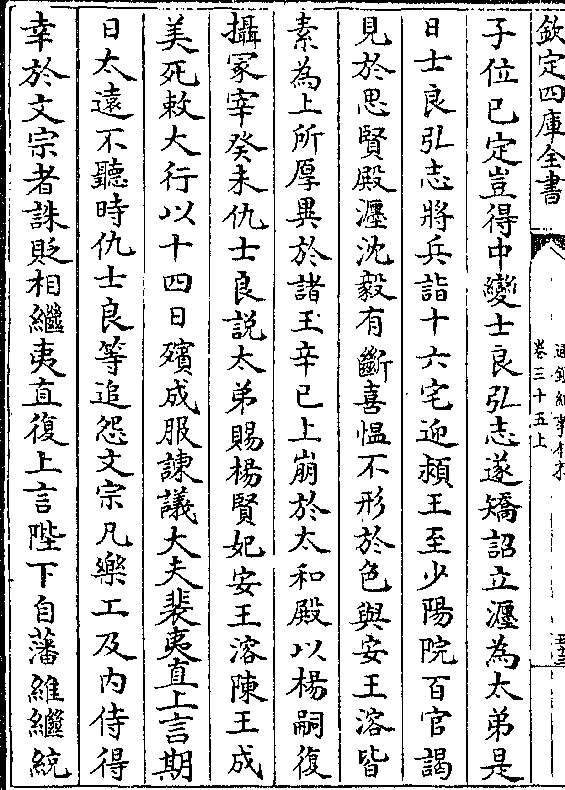 欽定四庫全書
卷三十五上
子位已定豈得中變士良弘志遂矯詔立瀍為太弟是
日士良弘志將兵詣十六宅迎潁王至少陽院百官謁
見於思賢殿瀍沈毅有斷喜愠不形於色與安王溶皆
素為上所厚異於諸王辛已上崩於太和殿以楊嗣復
攝冢宰癸未仇士良説太弟賜楊賢妃安王溶陳王成
美死敕大行以十四日殯成服諫議大夫裴夷直上言期
日太遠不聽時仇士良等追怨文宗凡樂工及内侍得
幸於文宗者誅貶相繼夷直復上言陛下自藩維繼統